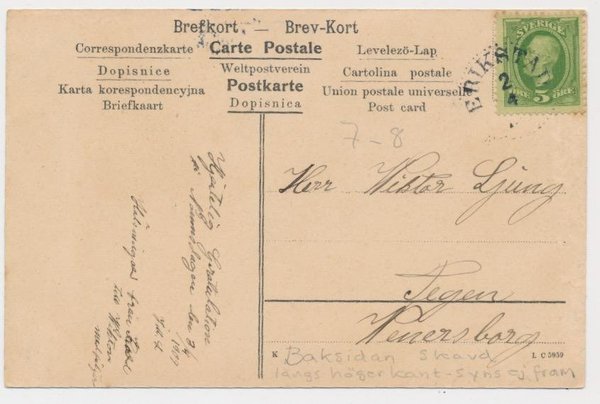 Brefkort. — Brev-Kort
Correspondenzkarte
Carte Postale
Levelezö-Lap
Dopisnice
Weltpostverein
Cartolina postale
Karta korespondencyjna
Postkarte
Union postale universelle
Briefkaart
Dopisnica
Post card
SVERIGE
5 ÖRE
ERIKSTAD
2
4
7-8
Herr Viktor Ljung
Tegen
Wenersborg
Hjertelig Gratulation
på Namnsdagen den
Helsningar från
Baksidan skavd
längs höger kant - syns ej fram
L C 5959